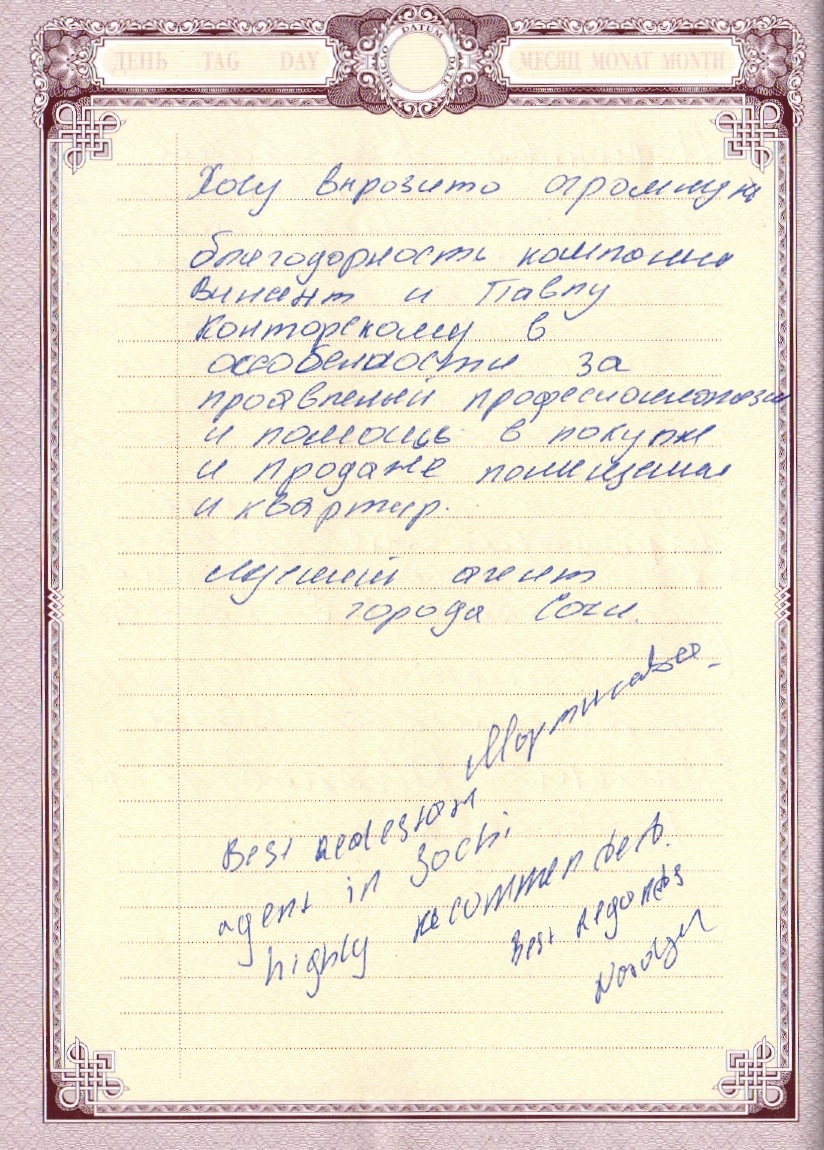 ДЕНЬ TAG DAY
DATUM
МЕСЯЦ MONAT MONTH
Хочу вырозить огромную
благодорность компании
Винсент и Павлу
Конторскому в
особенности за
проявленый професионализм
и помощь в покупке
и продаже помещения
и квартир.
лучший агент
города Сочи.
Best Realestate
agent in Sochi
highly recommended.
Best Regards